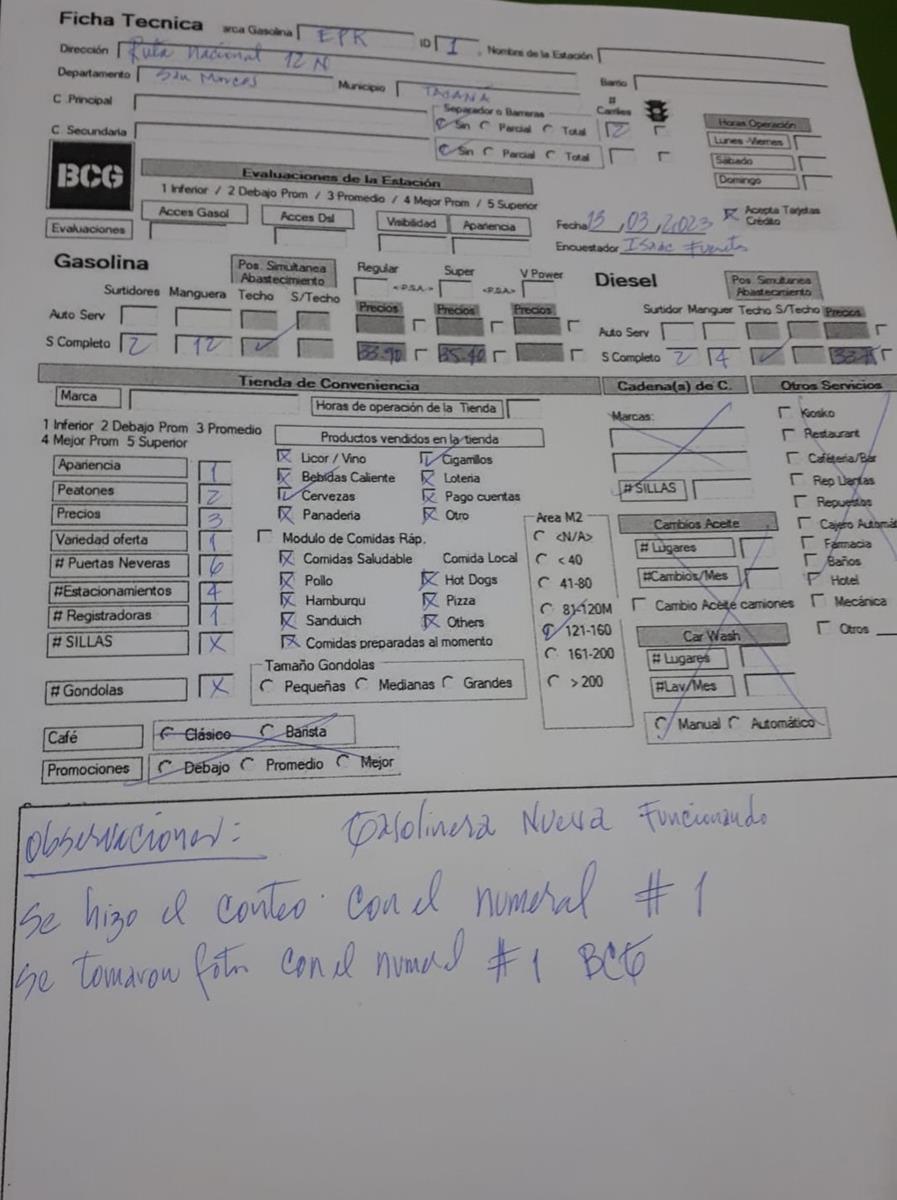 Ficha Tecnica arca Gasolina EPR ID 1 Nombre de la Estación
Dirección Ruta Nacional 12 N
Departamento San Marcos Municipio TAJANA Barrio
C .Principal Separador o Barreras # Carriles
Sin Parcial Total 2 Horas Operación
C .Secundaria Sin Parcial Total Lunes -Viernes
Sábado
Domingo
BCG
Evaluaciones de la Estación
1 Inferior / 2 Debajo Prom / 3 Promedio / 4 Mejor Prom / 5 Superior
Acces Gasol Acces Dsl Visibilidad Apariencia
Evaluaciones
Fecha 15 , 03 , 2023 Acepta Tarjetas Crédito
Encuestador Isaac
Gasolina Pos. Simultanea Abastecimiento Regular <-P.S.A.-> Super <-P.S.A-> V Power Diesel Pos. Simultanea Abastecimiento
Surtidores Manguera Techo S/Techo Precios Precios Precios Surtidor Manguer Techo S/Techo Precios
Auto Serv Auto Serv
S Completo 2 12 33.90 35.40 S Completo 2 4
Tienda de Conveniencia Cadena(s) de C. Otros Servicios
Marca Horas de operación de la Tienda Marcas:
1 Inferior 2 Debajo Prom 3 Promedio
4 Mejor Prom 5 Superior
Productos vendidos en la tienda
Apariencia 1
Peatones 2
Precios 3
Variedad oferta 1
# Puertas Neveras 6
#Estacionamientos 4
# Registradoras 1
# SILLAS X
# Gondolas X
Licor / Vino Cigarrillos
Bebidas Caliente Loteria
Cervezas Pago cuentas
Panaderia Otro
Modulo de Comidas Ráp.
Comidas Saludable Comida Local
Pollo Hot Dogs
Hamburqu Pizza
Sanduich Others
Comidas preparadas al momento
Tamaño Gondolas
Pequeñas Medianas Grandes
Area M2
<N/A>
< 40
41-80
81-120M
121-160
161-200
> 200
# SILLAS
Cambios Aceite
# Lugares
#Cambios/Mes
Cambio Aceite camiones
Car Wash
# Lugares
#Lav/Mes
Manual Automático
Kiosko
Restaurant
Cafeteria/Bar
Rep Llantas
Repuestos
Cajero Automá
Farmacia
Baños
Hotel
Mecánica
Otros
Café Clásico Barista
Promociones Debajo Promedio Mejor
Observaciones: Gasolinera Nueva Funcionando
Se hizo el conteo con el numeral # 1
Se tomaron foto con el numeral # 1 BCG